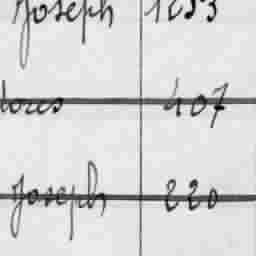 Joseph 1253
lores 407
Joseph 220